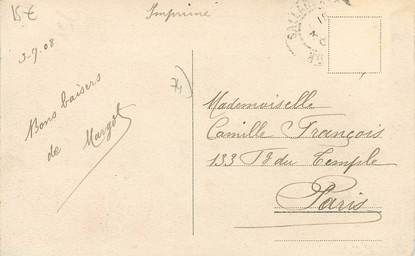 15 €
Imprimé
3-7-08
74
Bons baisers
de Margot
Mademoiselle
Camille François
133 Fg du Temple
Paris